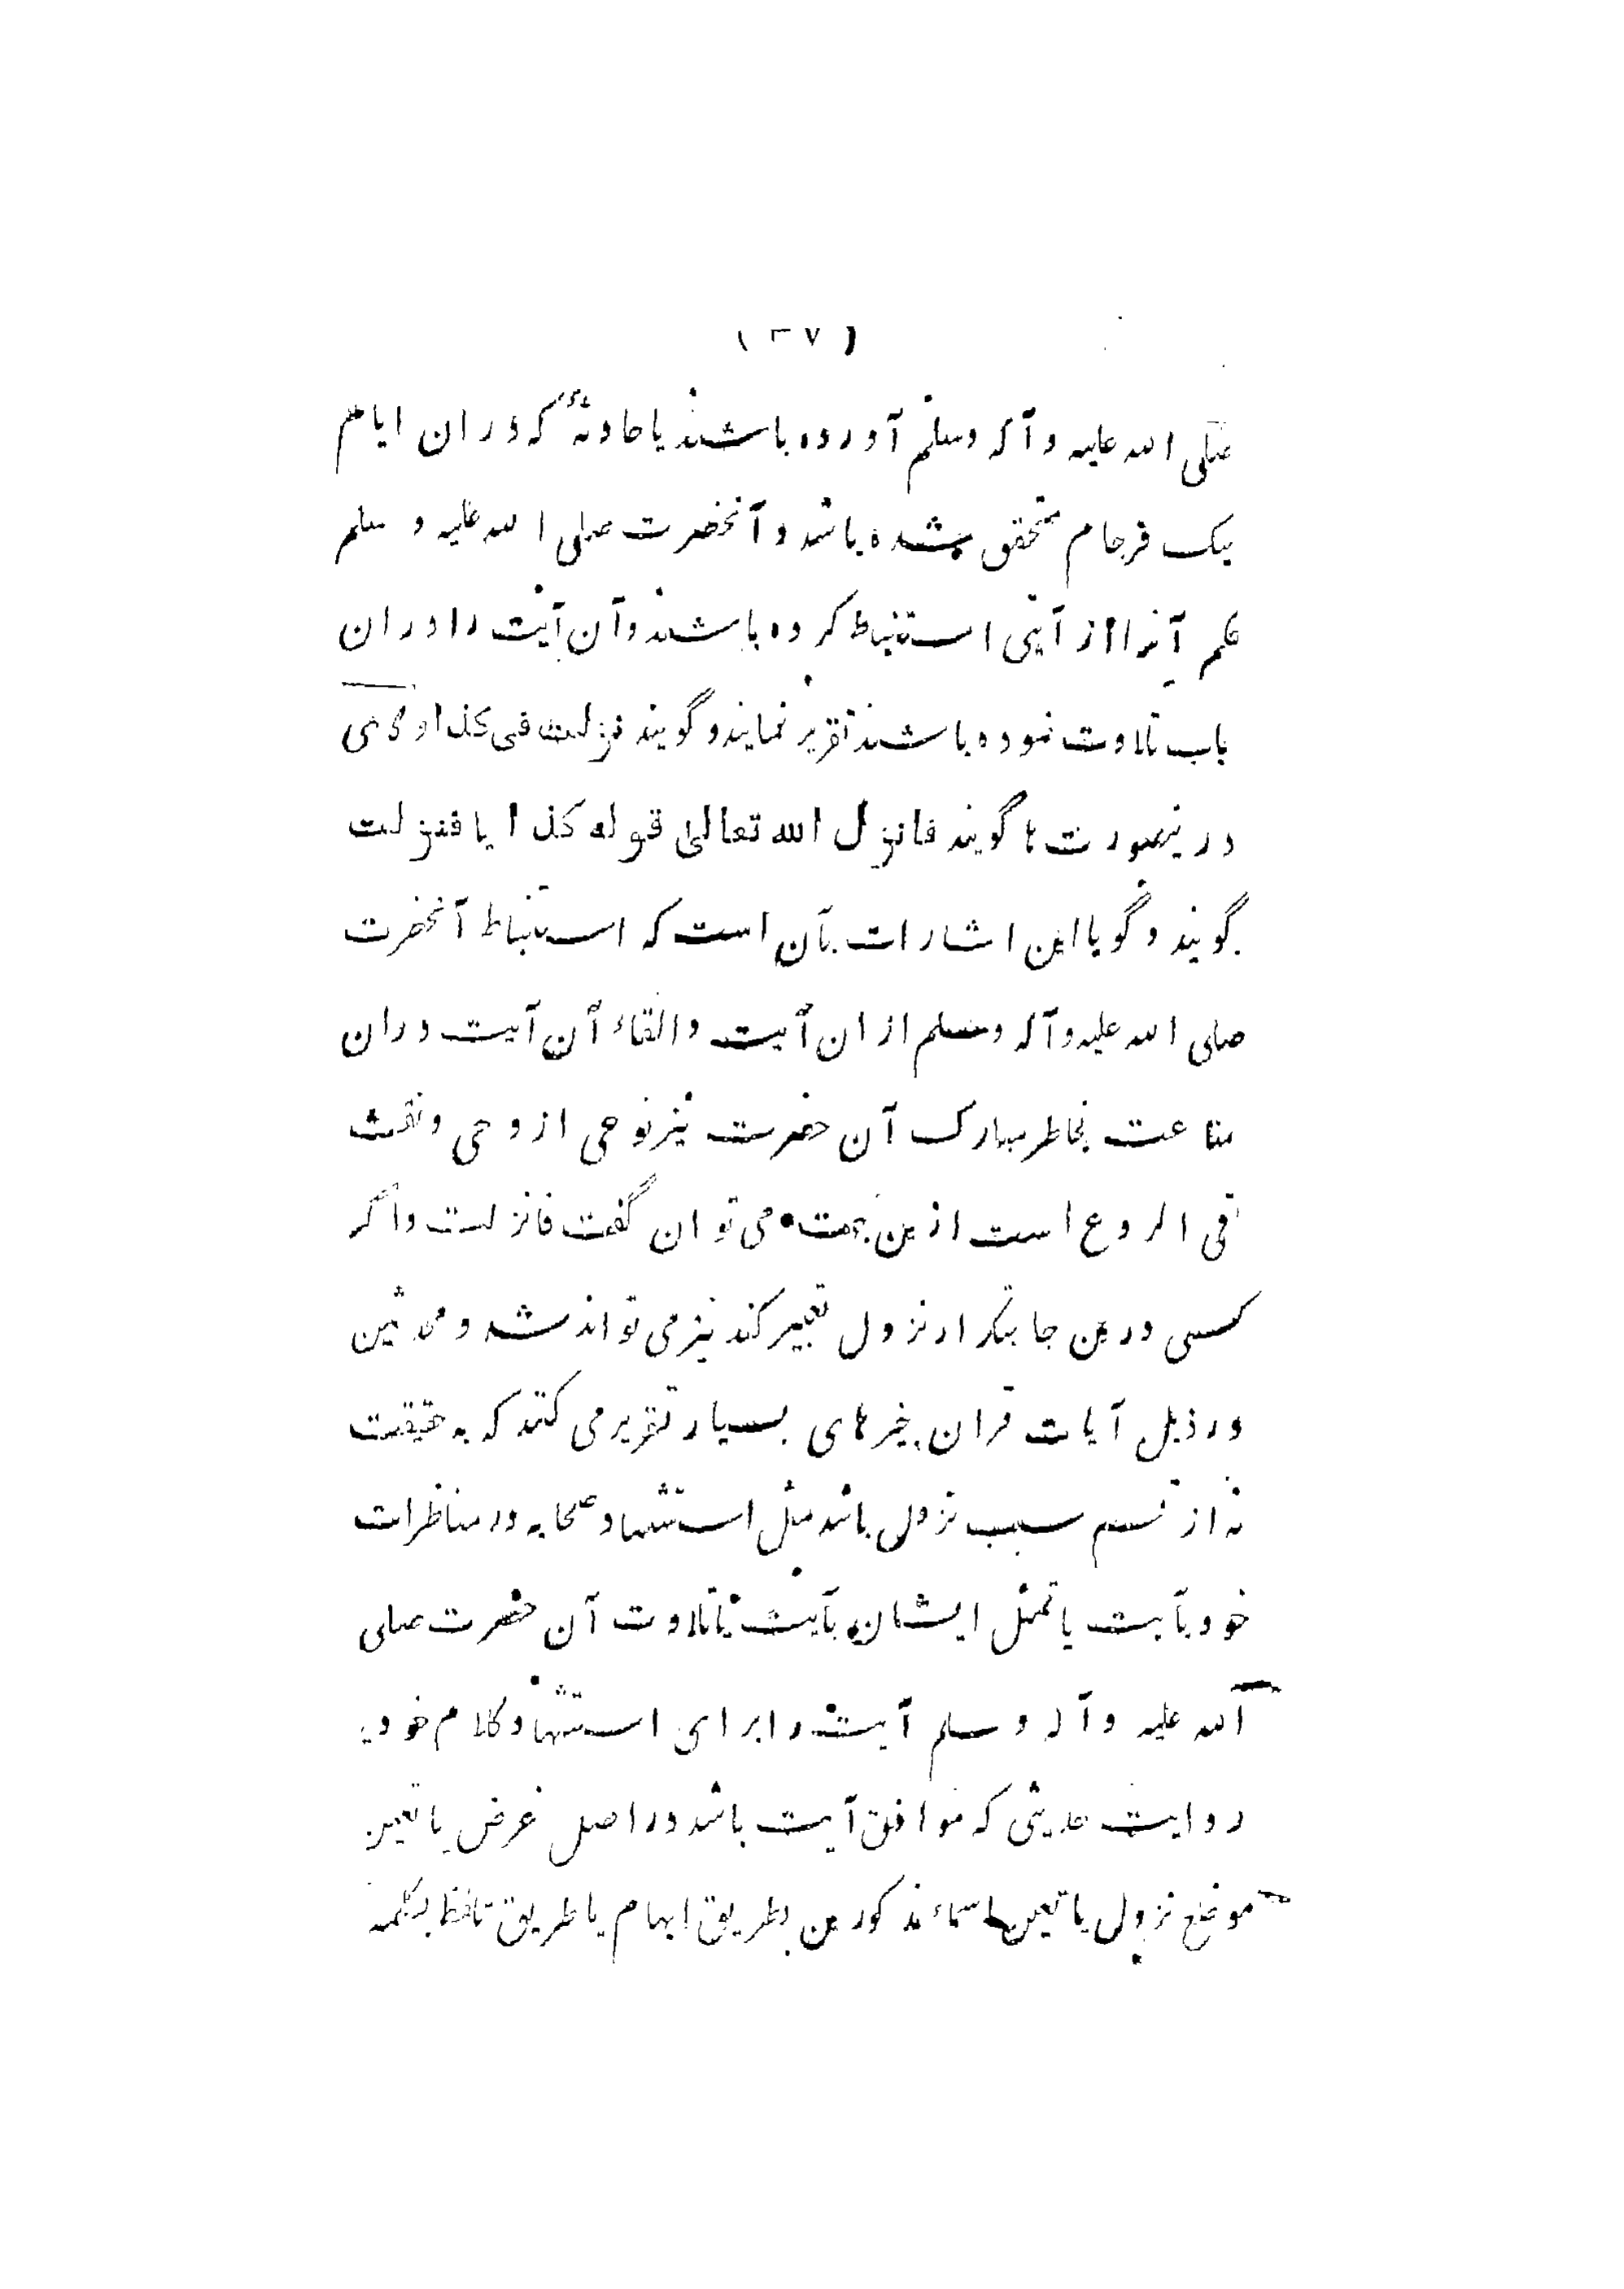 ( ٣٧ )
صلی الله علیه و آله وسلم آورده باشند یا حادثهٔ که دران ایام
نیک فرجام متحقق شده باشد و آنحضرت صلی الله علیه و سلم
حکم آنرا از آیتی استنباط کرده باشند و آن آیت را دران
باب تلاوت نموده باشند تقریر نمایند و گویند نزلت فی کذا و گاهی
درینصورت ها گویند فانزل الله تعالیٰ قوله کذا یا فنزلت
گویند و گویا این اشارات بآن است که استنباط آنحضرت
صلی الله علیه و آله وسلم ازان آیت و القاء آن آیت دران
ساعت بخاطر مبارک آن حضرت نیز نوعی از وحی و نفث
فی الروع است ازین جهت می توان گفت فانزلت و اگر
کسی درین جا بتکرار نزول تعبیر کند نیز می تواند شد و محدثین
در ذیل آیات قران چیزهای بسیار تقریر می کنند که به حقیقت
نه از قسم سبب نزول باشد مثل استشهاد صحابه در مناظرات
خود بآیت یا تمثل ایشان بآیت یا تلاوت آن حضرت صلی
الله علیه و آله وسلم آیت را برای استشهاد کلام خود یا
روایت حدیثی که موافق آیت باشد در اصل غرض یا تعیین
موضع نزول یا تعیین اسماء مذکورین بطریق ابهام یا طریق تلفظ بکلمه